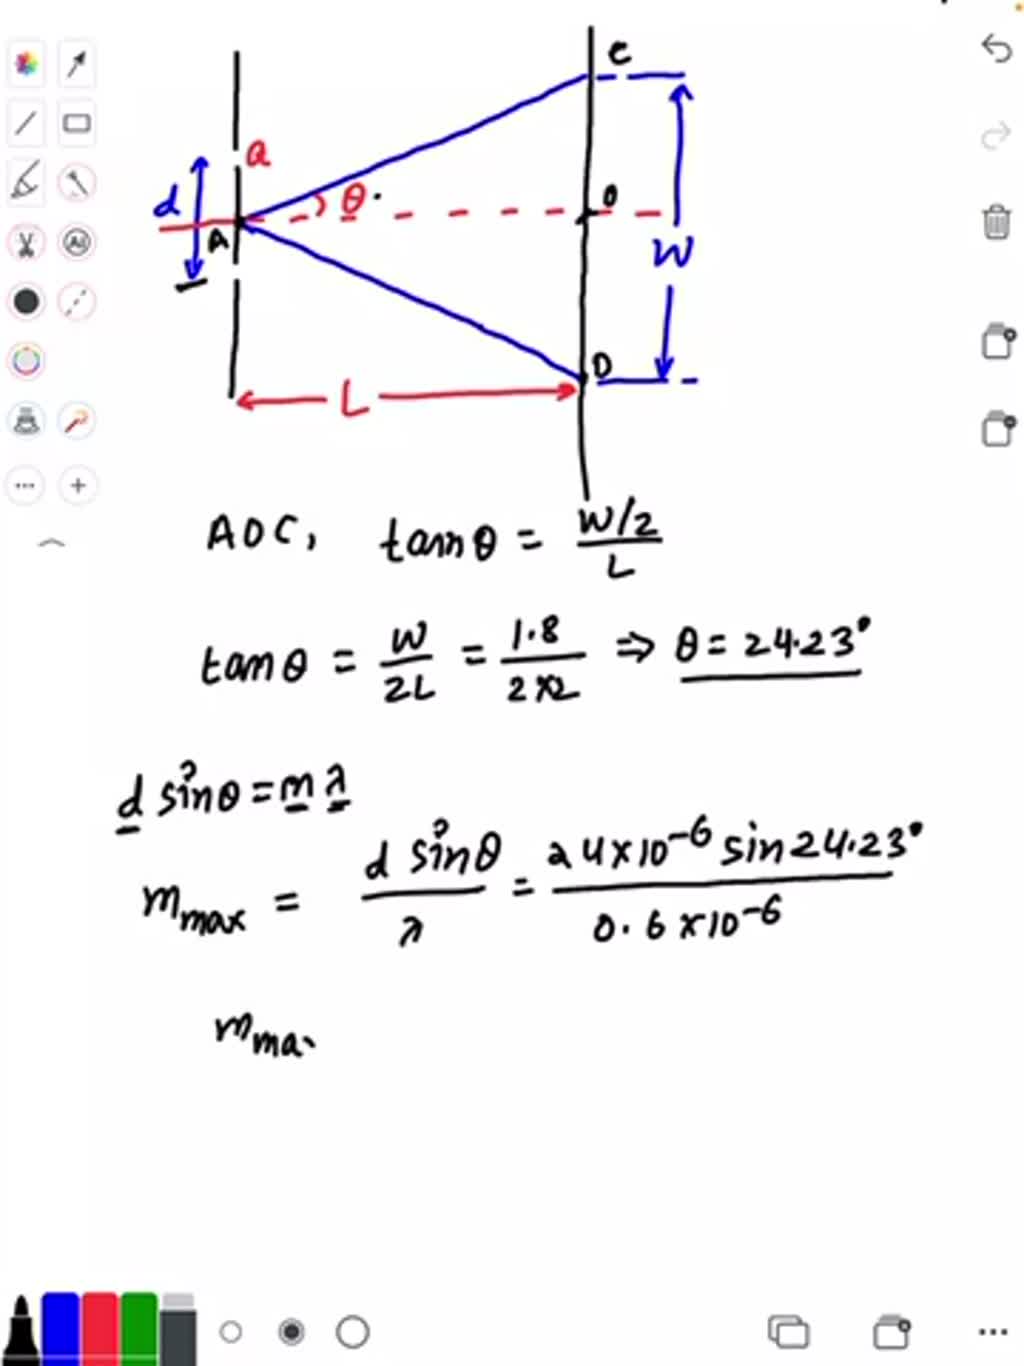 C
a
d
θ
O
A
W
D
L
AOC, tanθ = W/2 / L
tanθ = W / 2L = 1.8 / 2×2 ⇒ θ = 24.23°
d sinθ = m λ
m max = d sinθ / λ = 24×10⁻⁶ sin 24.23° / 0.6×10⁻⁶
m ma